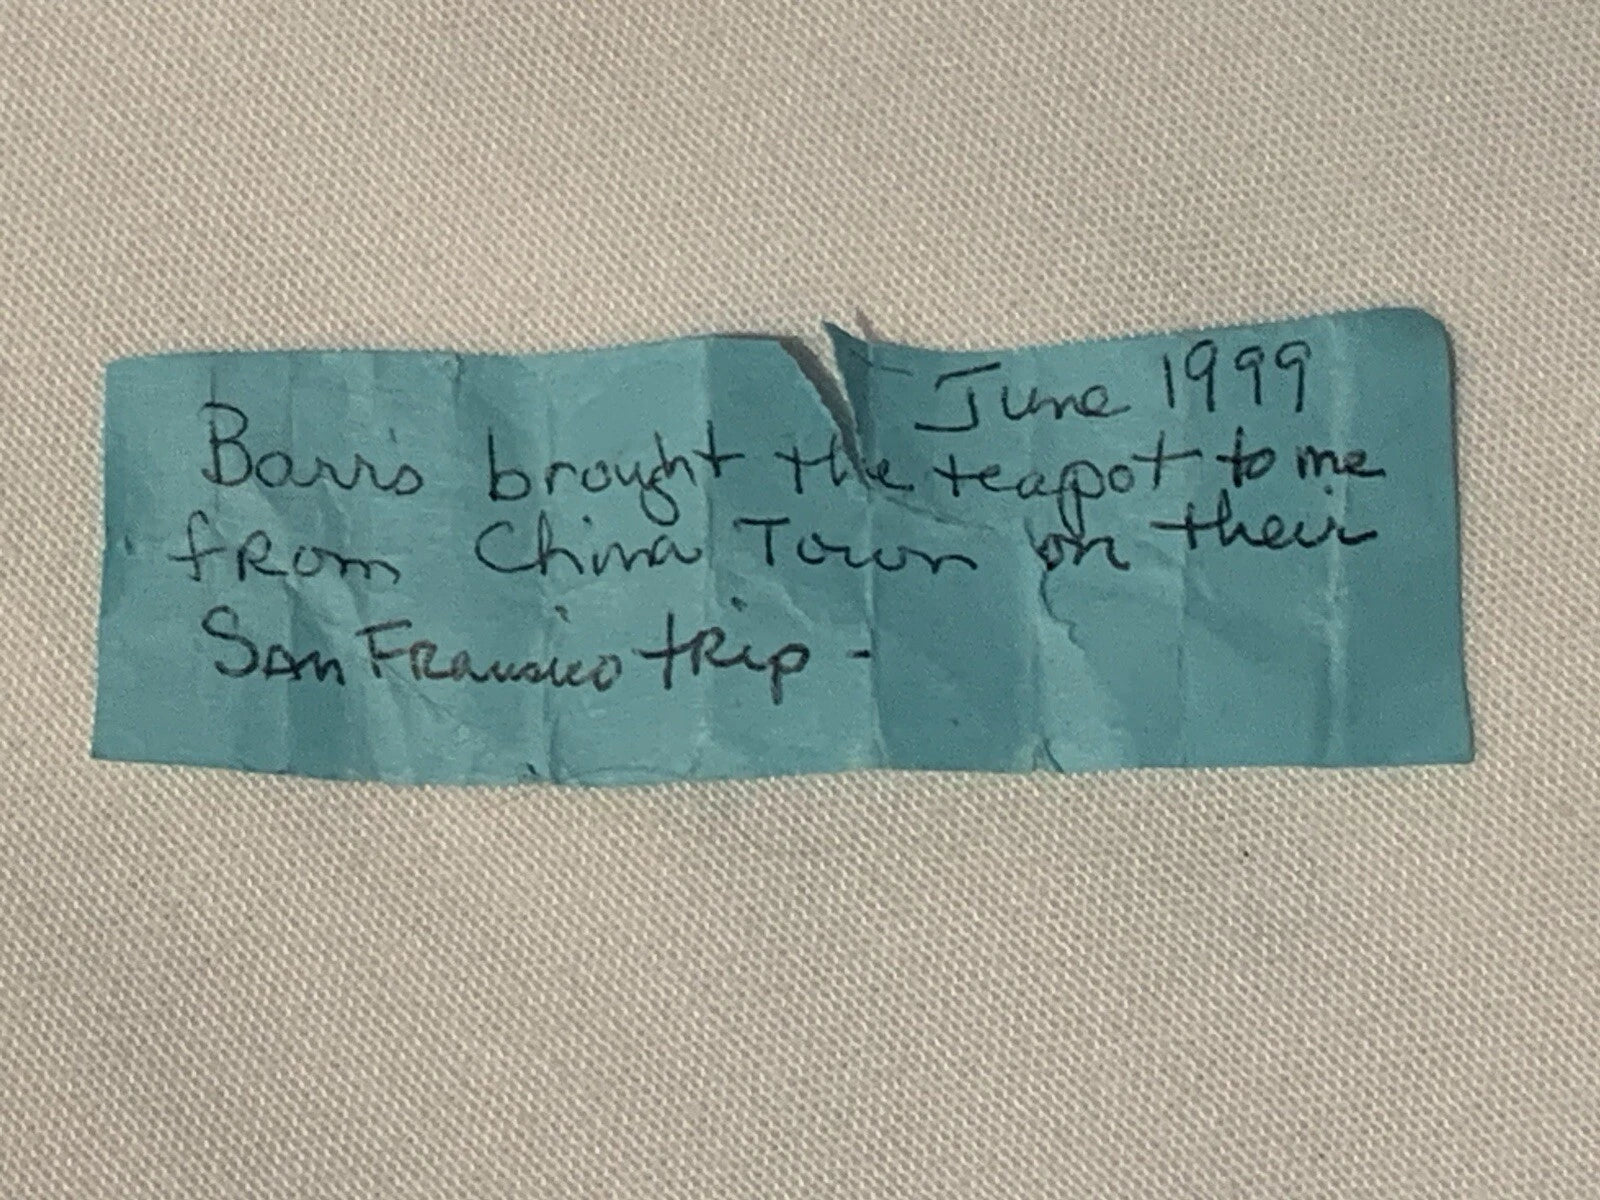 June 1999
Barr's brought the teapot to me
from China Town on their
San Fransico trip -